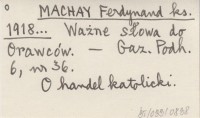 MACHAY Ferdynand ks.
1918... Ważne słowa do
Orawców. — Gaz. Podh.
6, nr 36.
O handel katolicki.